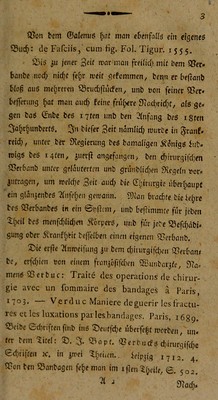 3
Von dem Galenus hat man ebenfalls ein eigenes
Buch: de Fasciis, cum fig. Fol. Tigur. 1555.
Bis zu jener Zeit war man freilich mit dem Ver-
bande noch nicht sehr weit gekommen, denn er bestand
bloß aus mehreren Bruchstücken, und von seiner Ver-
besserung hat man auch keine frühere Nachricht, als ge-
gen das Ende des 17ten und den Anfang des 18ten
Jahrhunderts. In dieser Zeit nämlich wurde in Frank-
reich, unter der Regierung des damaligen Königs Lud-
wigs des 14ten, zuerst angefangen, den chirurgischen
Verband unter geläuterten und gründlichen Regeln vor-
zutragen, um welche Zeit auch die Chirurgie überhaupt
ein glängendes Ansehen gewann. Man brachte die Lehre
des Verbandes in ein System, und bestimmte für jeden
Theil des menschlichen Körpers, und für jede Beschädi-
gung oder Krankheit desselben einen eigenen Verband.
Die erste Anweisung zu dem chirurgischen Verban-
de, erschien von einem französischen Wundarzte, Na-
mens Verduc: Traité des operations de chirur-
gie avec un sommaire des bandages à Paris,
1703. — Verduc Maniere de guerir les fractu-
res et les luxations par les bandages. Paris, 1689.
Beide Schriften sind ins Deutsche übersetzt worden, un-
ter dem Titel: D. J. Bapt. Verducks chirurgische
Schriften ꝛc, in zwei Theilen. Leipzig 1712. 4.
Von den Bandagen sehe man im 1sten Theile, S. 502.
A 2
Nach-